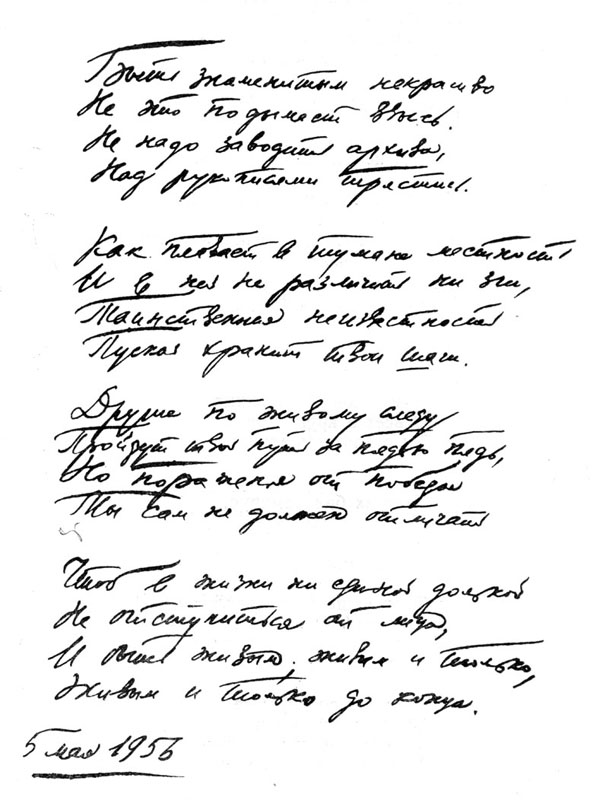 Быть знаменитым некрасиво
Не это подымает ввысь.
Не надо заводить архива,
Над рукописями трястись.
Как плавает в тумане местность
И в ней не различить ни зги,
Таинственная неизвестность
Пускай хранит твои шаги.
Другие по живому следу
Пройдут твой путь за пядью пядь,
Но пораженья от победы
Ты сам не должен отличать
Чтоб в жизни ни единой долькой
Не отступиться от лица,
И быть живым, живым и только,
Живым и только до конца.
5 мая 1956